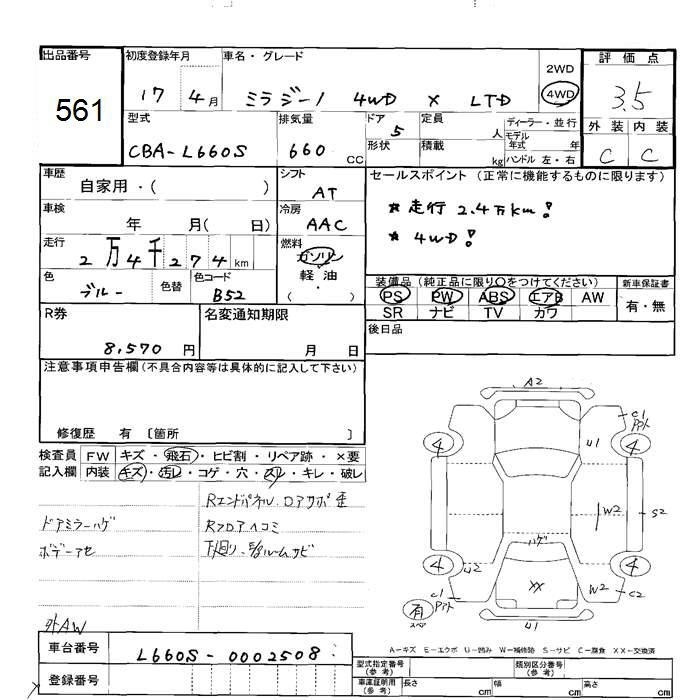 出品番号
561
初度登録年月
17 4月
車名・グレード
ミラジーノ 4WD X LTD
2WD
4WD
評価点
3.5
外装 内装
C C
型式
CBA-L660S
排気量
660 CC
ドア
5
定員
人
形状
積載
kg
ディーラー・並行
モデル年式 年
ハンドル 左・右
車歴
自家用・( )
シフト
AT
セールスポイント (正常に機能するものに限ります)
★ 走行 2.4万km!
★ 4WD!
車検
年 月( 日)
冷房
AAC
走行
2万4千274km
燃料
ガソリン
軽油
( ・ )
色
ブルー
色替
色コード
B52
装備品(純正品に限り○をつけてください)
PS PW ABS エアB AW
SR ナビ TV カワ
新車保証書
有・無
R券
8,570 円
名変通知期限
月 日
後日品
注意事項申告欄(不具合内容等は具体的に記入して下さい)
修復歴 有 〔箇所 〕
検査員記入欄
FW キズ・飛石・ヒビ割・リペア跡・×要
内装 キズ・汚レ・コゲ・穴・スレ・キレ・破レ
Rエンドパネル、Dアサポ歪
ドアミラーハゲ
Rフロアヘコミ
ボデーアセ
外AW
A2
C1
U1
4
4
W2
S2
ハゲ
4
4
U2
XX
W2
C2
C1
有
スペア
U1
A-キズ E-エクボ U-凹み W-補修跡 S-サビ C-腐食 XX-交換済
車台番号
L660S-0002508
登録番号
型式指定番号
(参考)
類別区分番号
(参考)
車庫証明用
(参考)
長さ cm
幅 cm
高さ cm